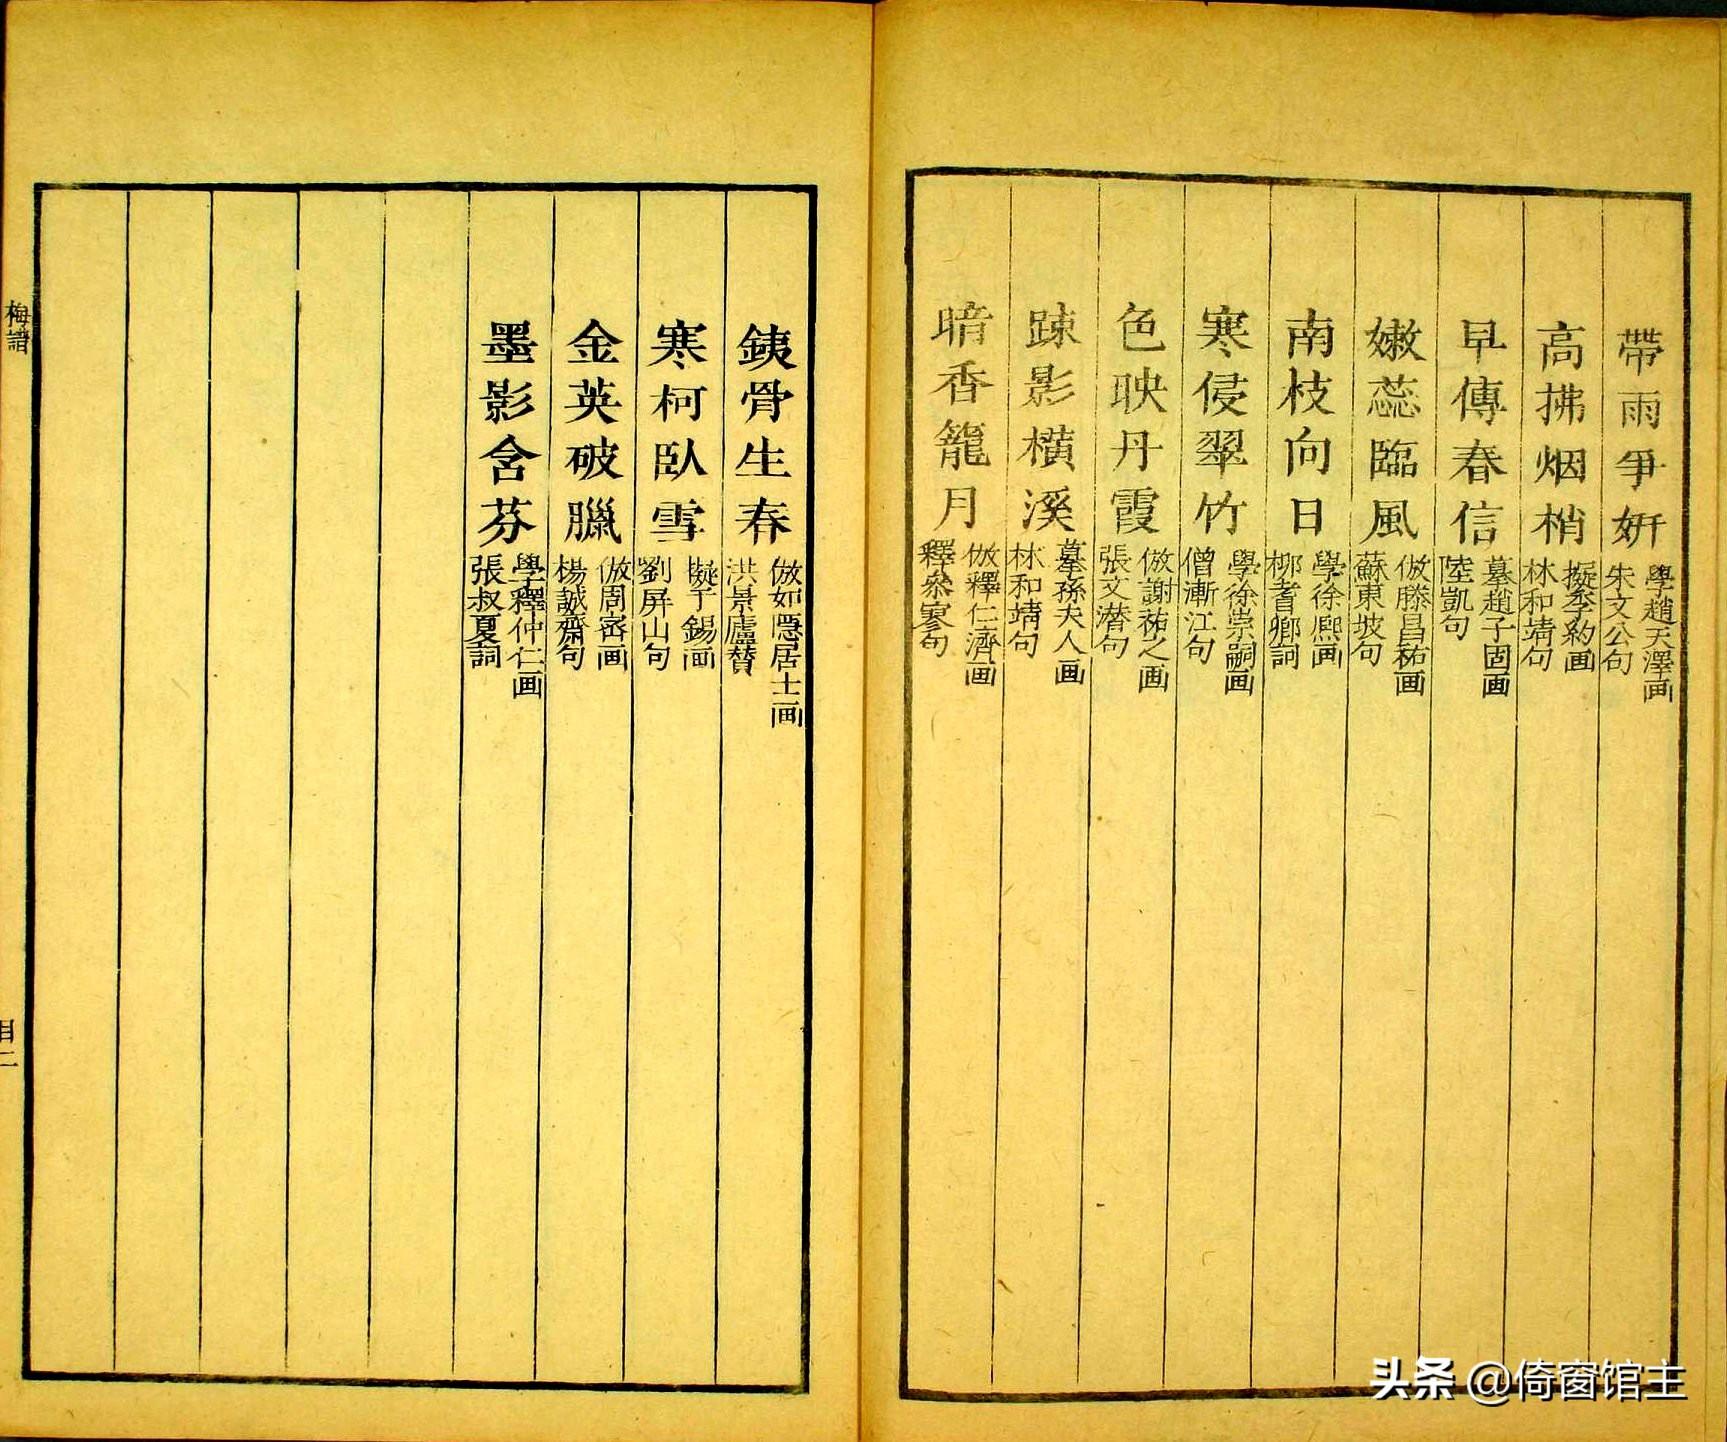 帶雨爭妍 學趙天澤画 朱文公句
高拂烟梢 擬李約画 林和靖句
早傳春信 摹趙子固画 陸凱句
嫩蕊臨風 倣滕昌祐画 蘇東坡句
南枝向日 學徐熙画 柳耆鄉詞
寒侵翠竹 學徐崇嗣画 僧漸江句
色映丹霞 倣謝祐之画 張文潛句
踈影橫溪 摹孫夫人画 林和靖句
暗香籠月 倣釋仁濟画 釋參寥句
銕骨生春 倣如隱居士画 洪景廬贊
寒柯臥雪 擬于錫画 劉屏山句
金英破臘 倣周密画 楊誠齋句
墨影含芬 學釋仲仁画 張叔夏詞
梅譜
目二
头条 @倚窗馆主